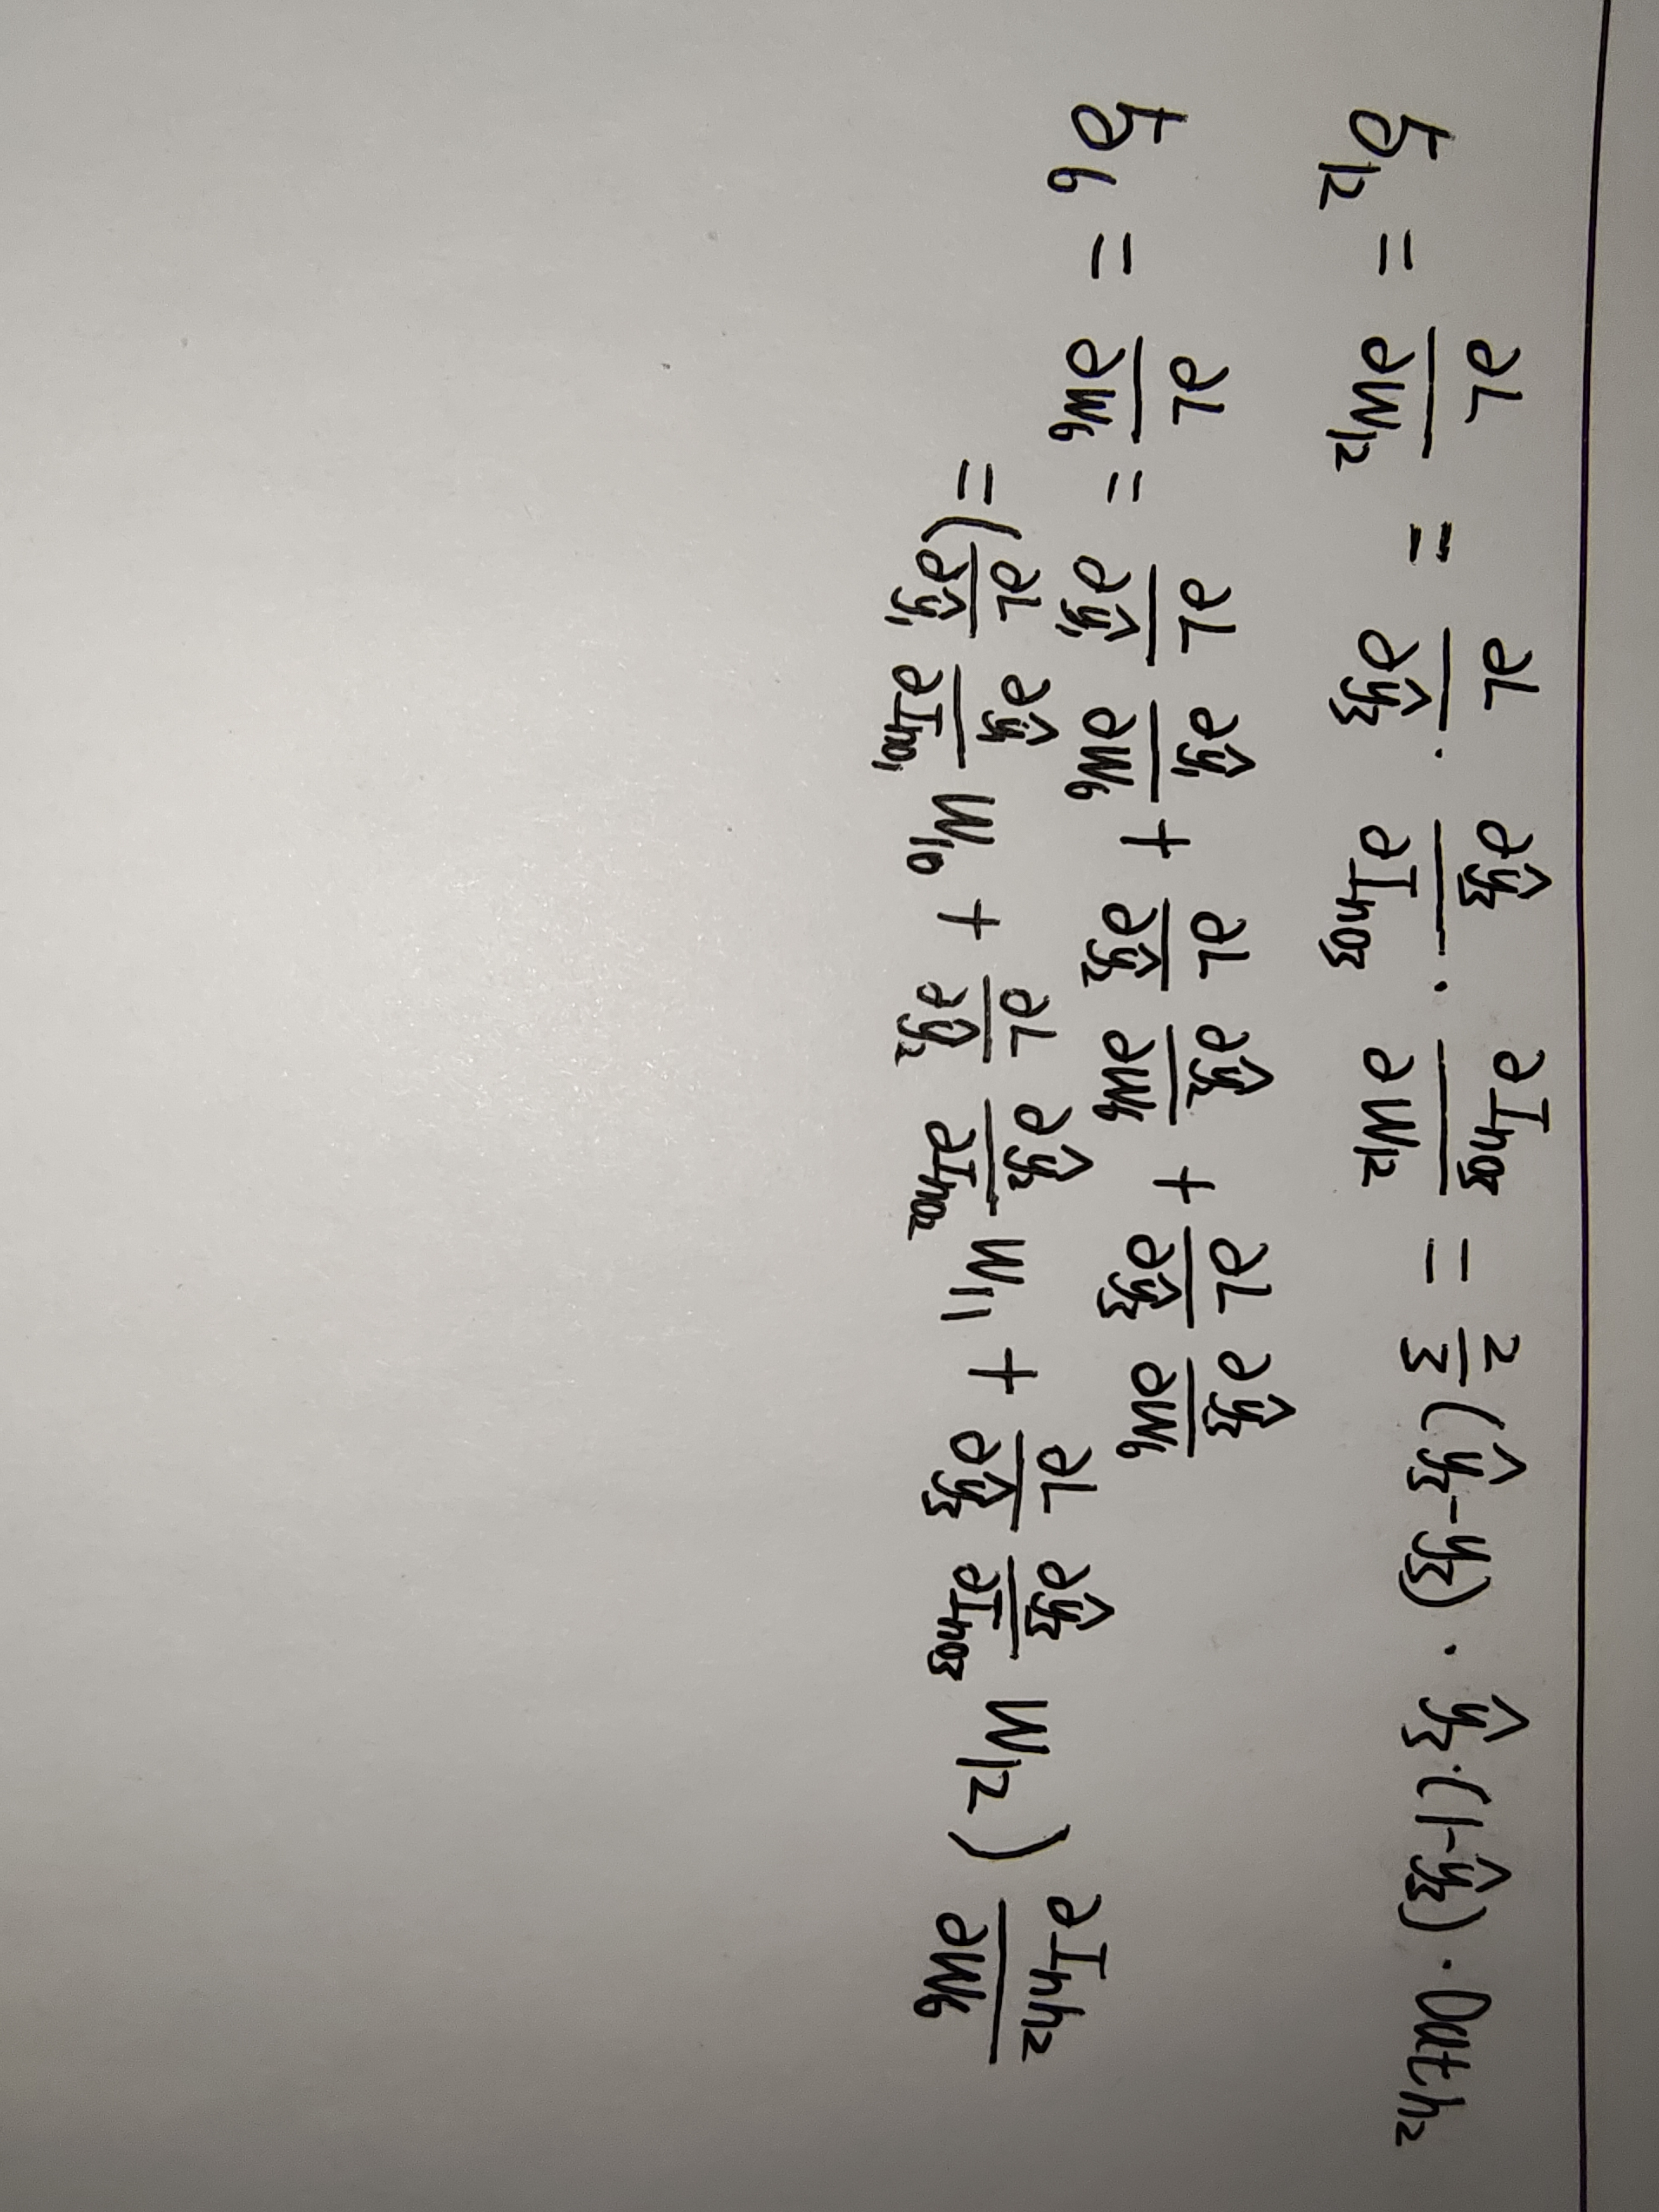 δ₁₂ = ∂L/∂W₁₂ = ∂L/∂ŷ₃ · ∂ŷ₃/∂Inₒ₃ · ∂Inₒ₃/∂W₁₂ = 2/3 (ŷ₃-y₃) · ŷ₃·(1-ŷ₃) · Outh₂
δ₆ = ∂L/∂W₆ = ∂L/∂ŷ₁ ∂ŷ₁/∂W₆ + ∂L/∂ŷ₂ ∂ŷ₂/∂W₆ + ∂L/∂ŷ₃ ∂ŷ₃/∂W₆
=(∂L/∂ŷ₁ ∂ŷ₁/∂Inₒ₁ W₁₀ + ∂L/∂ŷ₂ ∂ŷ₂/∂Inₒ₂ W₁₁ + ∂L/∂ŷ₃ ∂ŷ₃/∂Inₒ₃ W₁₂) ∂Inh₂/∂W₆